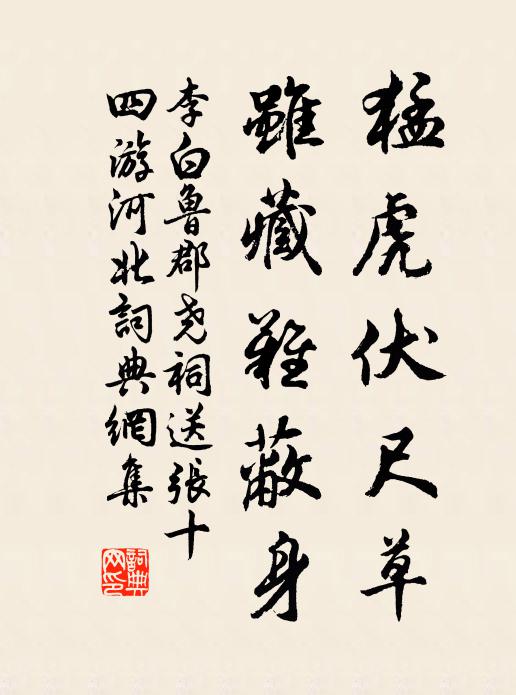 猛虎伏尺草
雖藏難蔽身
李白魯郡尭祠送張十
四游河北詞典網集
詞典
网印